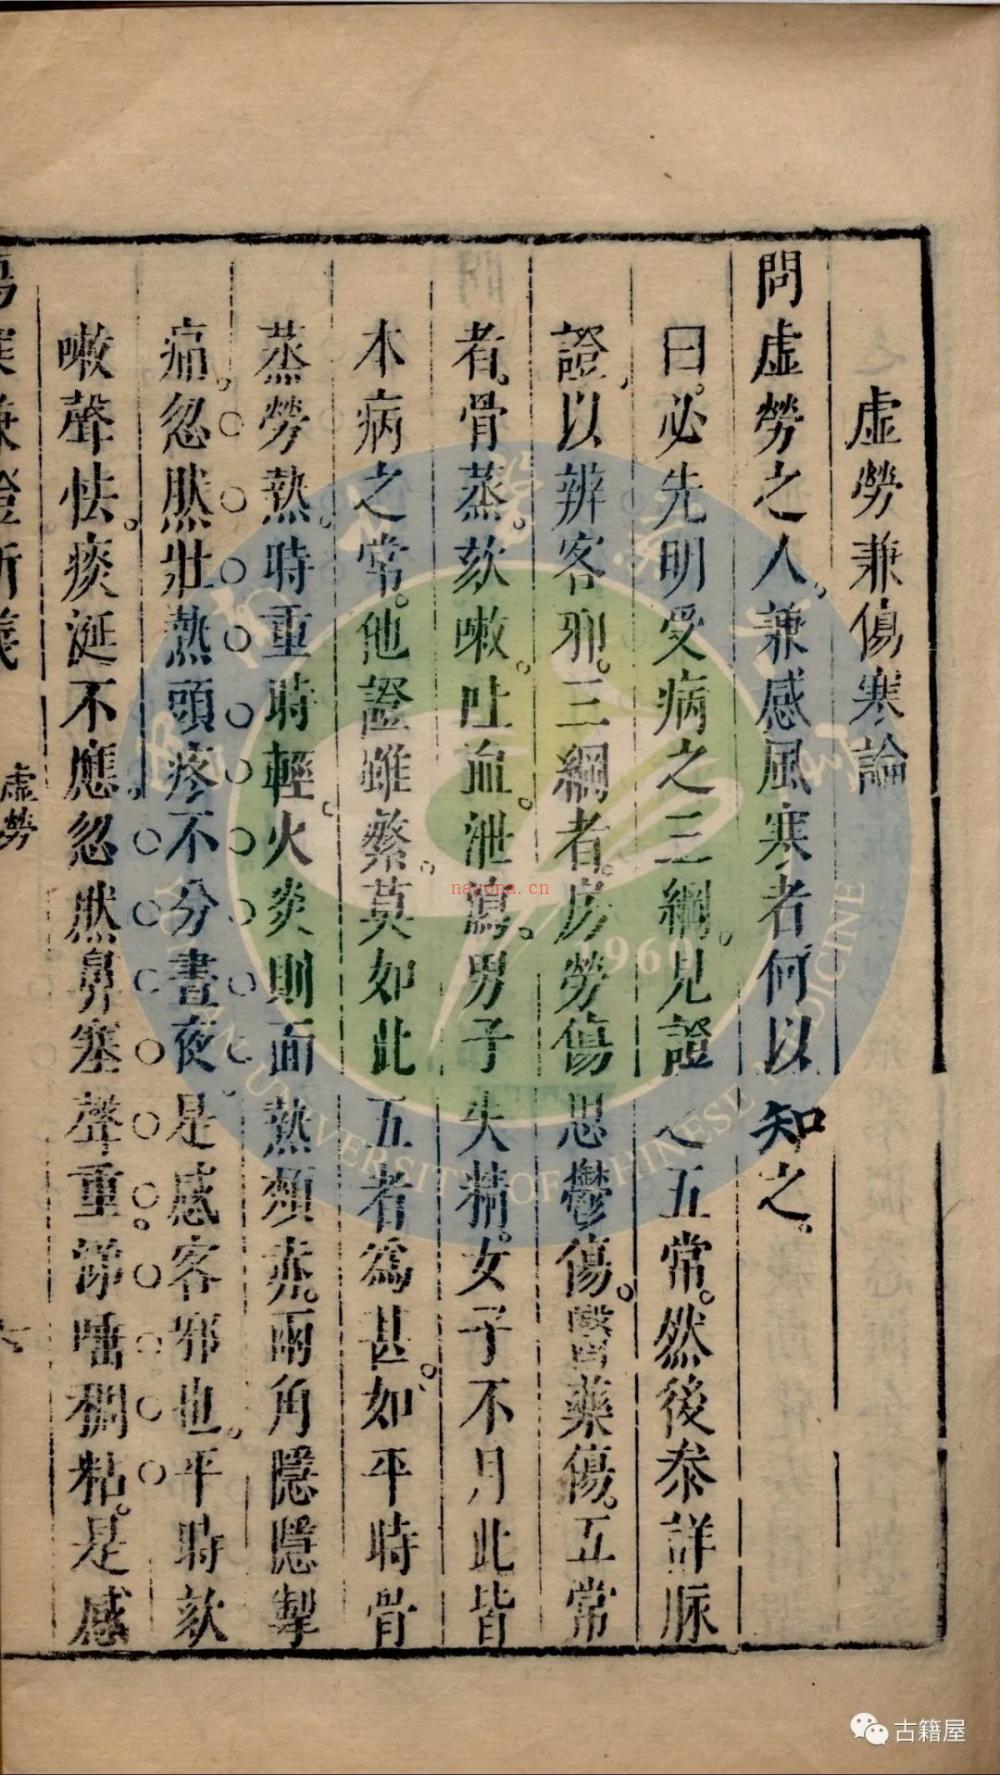 虛勞兼傷寒論
問虛勞之人兼感風寒者何以知之
曰必先明受病之三綱見證之五常然後叅詳脈
證以辨客邪三綱者房勞傷思鬱傷醫藥傷五常
者骨蒸欬嗽吐血泄瀉男子失精女子不月此皆
本病之常他證雖繁莫如此五者爲甚如平時骨
蒸勞熱時重時輕火炎則面熱頰赤兩角隱隱掣
痛忽然壯熱頭疼不分晝夜是感客邪也平時欬
嗽聲怯痰涎不應忽然鼻塞聲重涕唾稠粘是感
傷寒兼證析義
虛勞
1960
UNIVERSITY OF CHINESE MEDICINE
nayona.cn
古籍屋